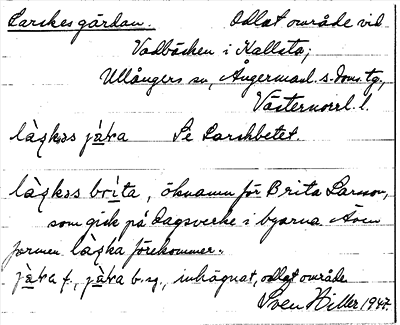 Larskesgärdan. Odlat område vid
Vadbäcken i Kallsta;
Ullångers sn, Ångermanl. s. doms.tg.,
Västernorrl. l.
Se Larskbetet.
öknamn för Brita Larsson,
som gick på dagsverke i byarna. Även
formen förekommer.
f., b. sg., inhägnat, odlat område
Sven Hiller 1947.